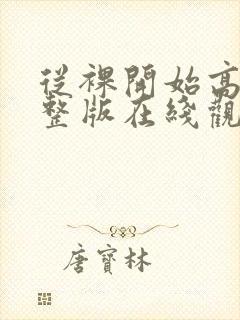 從裸開始高
整版在綫觀
唐寶林